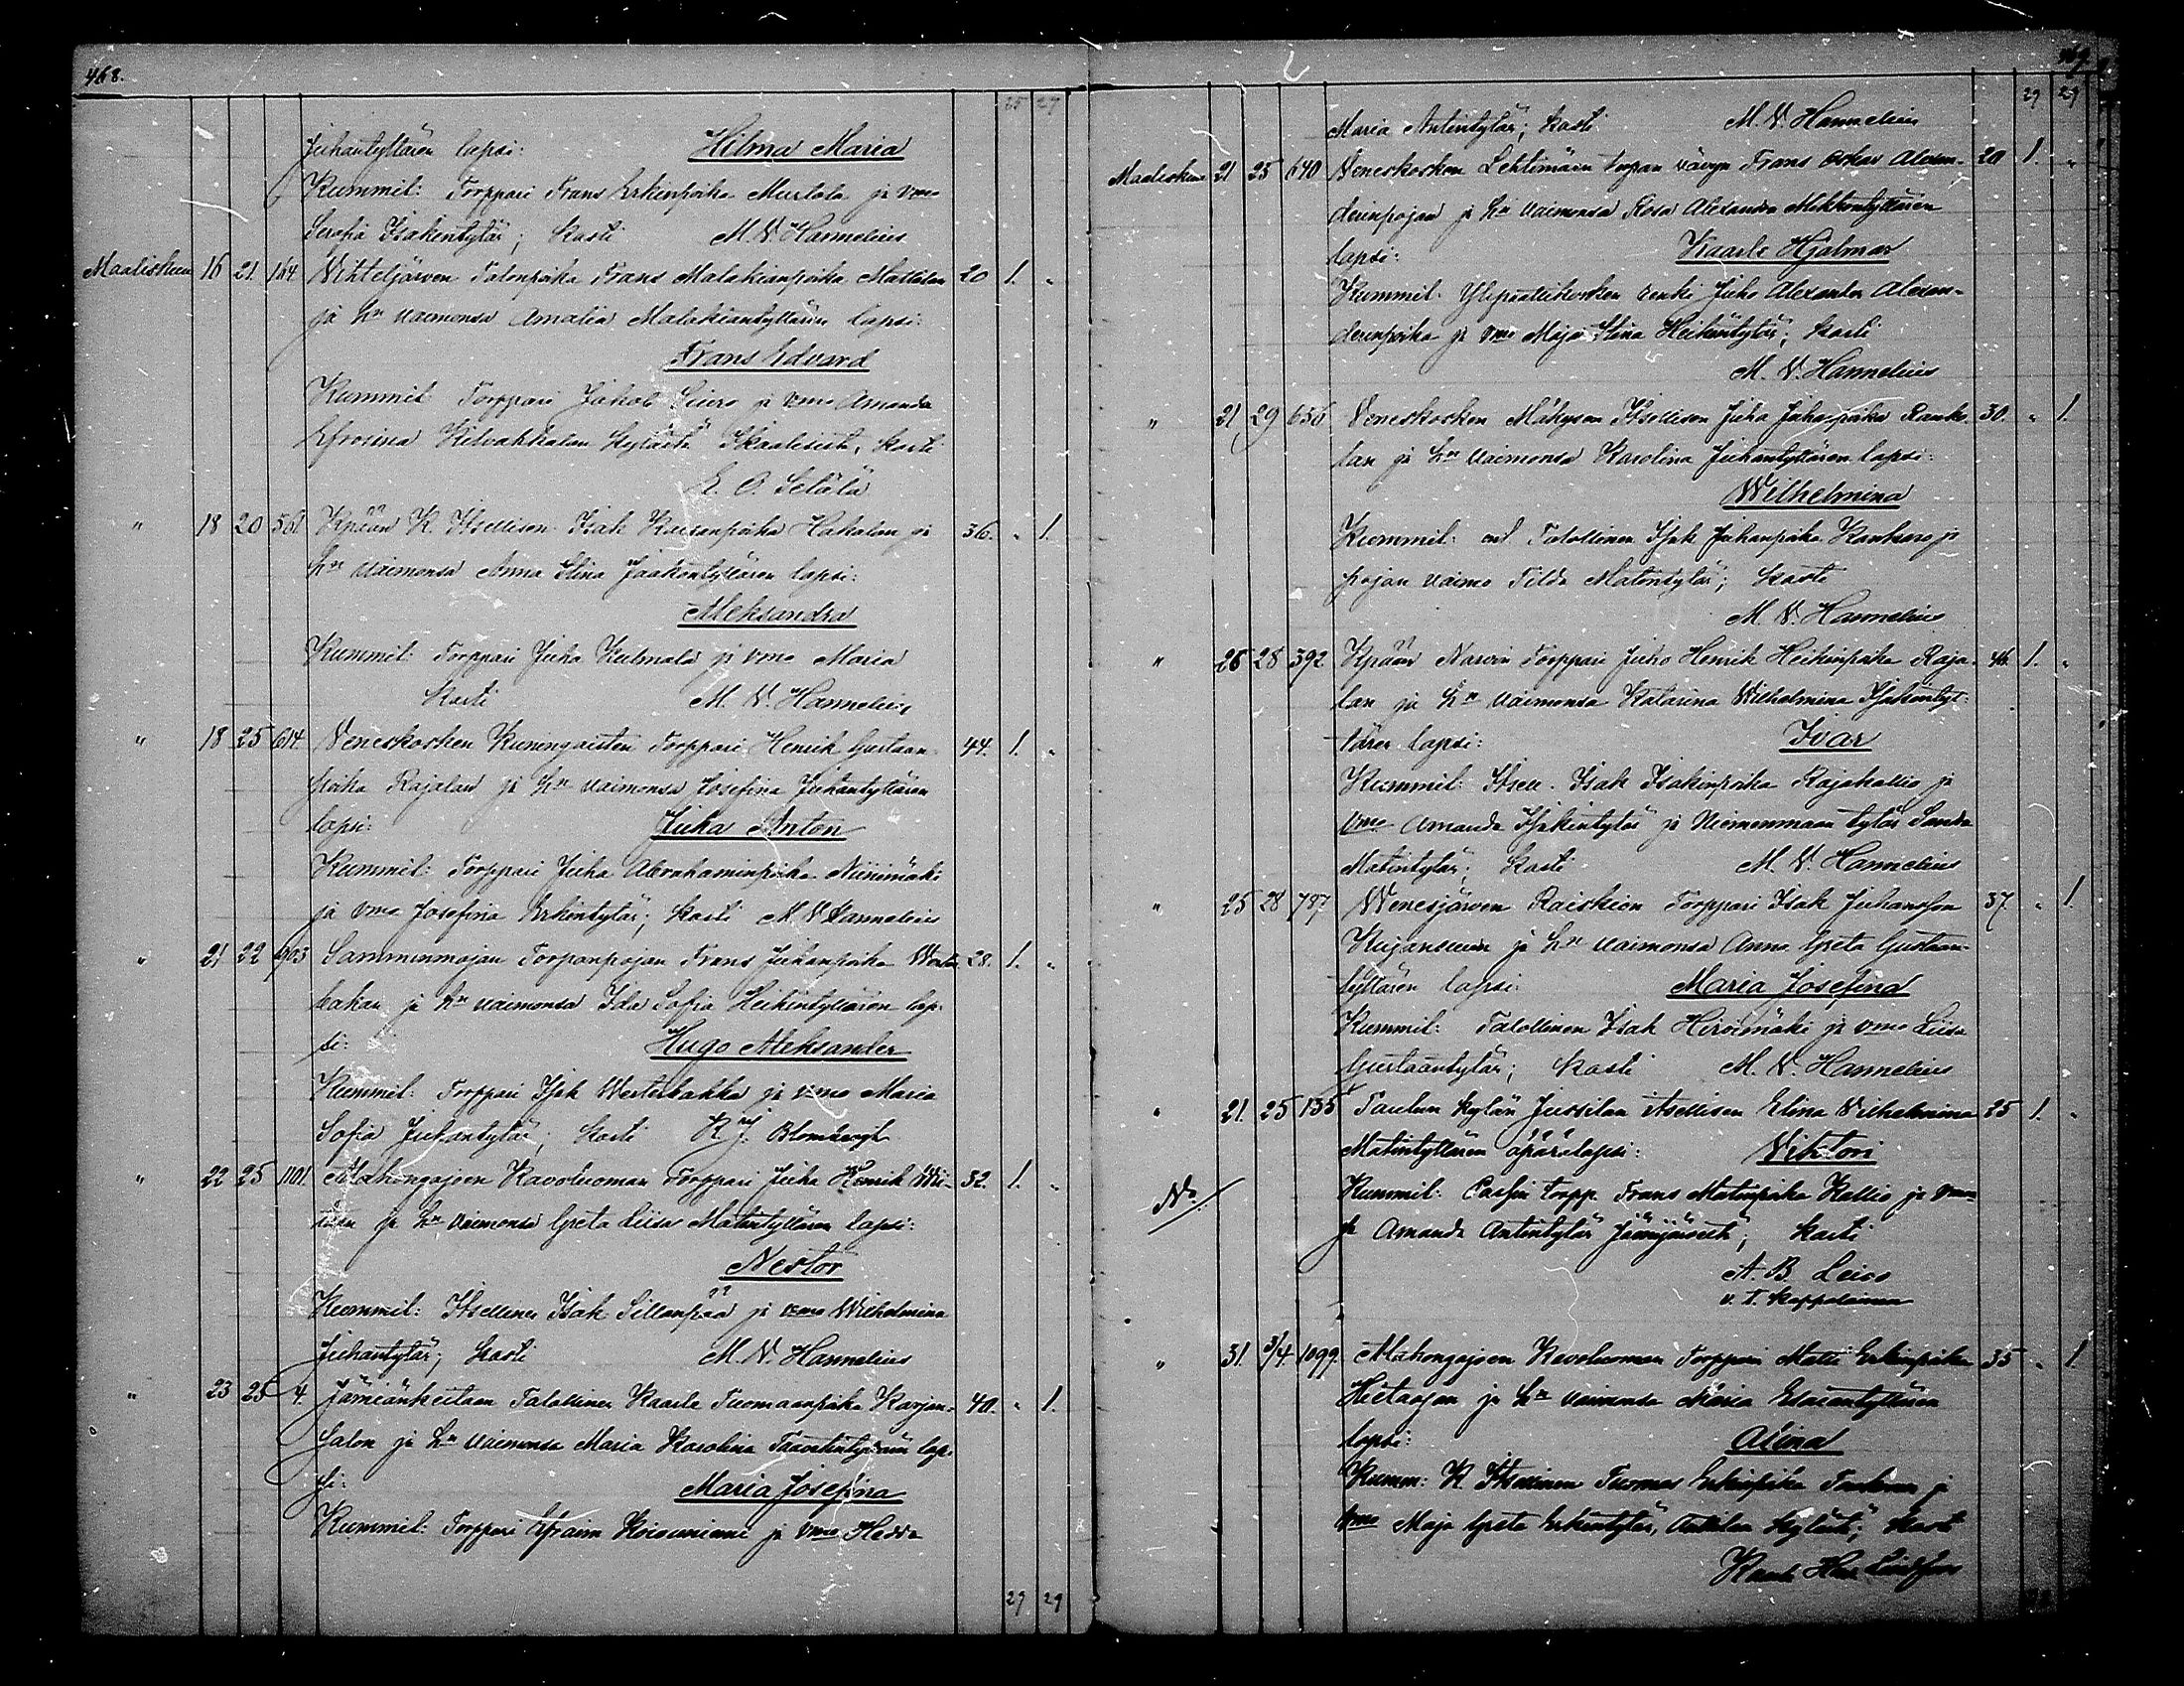 468.
25 27
Juhantyttären lapsi: Hilma Maria
Kummit: Torppari Frans Erkinpoika Murtola ja vmo
Serafia Isakintytär; kasti M. V. Hannelius
Maaliskuu 16 21. 164 Vihteljärven Talonpoika Frans Malakianpoika Mattilan 20 1. "
ja hn vaimonsa Amalia Malakiantyttären lapsi:
Frans Edvard
Kummit: Torppari Jakob ja vmo Amanda
Efrosina kylästä kasti
E. O. Setälä
" 18 20 561 Kpään K. Itsellisen Isak Hakalan ja 36. " 1.
hn vaimonsa Anna Stina Jaakontyttären lapsi:
Aleksandra
Kummit: Torppari Juha Kulmala ja vmo Maria
kasti M. V. Hannelius
" 18 25 614 Veneskosken Kuningaisten Torppari Henrik Gustaan- 44. 1. "
poika Rajalan ja hn vaimonsa Josefina Juhantyttären
lapsi: Juha Anton
Kummit: Torppari Juha Abrahaminpoika Niinimäki
ja vmo Josefina Erkintytär; kasti M. V Hannelius
" 21 22 903 Samminmajan Torpanpojan Frans Juhanpoika Wester- 28. 1. "
bakan ja hn vaimonsa Ida Sofia Heikintyttären lap-
si: Hugo Aleksander
Kummit: Torppari Isak Westerbakka ja vmo Maria
Sofia Juhantytär; kasti K. J. Blombergh
" 22 25 1101. Alahongajoen Kavoluoman Torppari Juha Henrik 32. 1. "
ja hn vaimonsa Greta Liisa Matintyttären lapsi:
Nestor
Kummit: Itsellinen Isak Sillanpää ja vmo Wilhelmina
Juhantytär; kasti M. V. Hannelius
" 23 25 4. Jämiänkeitaan Talollinen Kaarle Tuomaanpoika Karjan- 40. " 1.
salon ja hn vaimonsa Maria Karolina Taavetintyttären lap-
si: Maria Josefina
Kummit: Torppari Efraim Koivuniemi ja vmo Hedda
29 29
469.
29 29
Maria Antintytär; kasti M. V. Hannelius
Maaliskuu 21 25 640 Veneskosken Lehtimäen torpan vävyn Frans Oskar Alexan- 20 1. "
derinpojan ja hn vaimonsa Rosa Alexandra Mikkontyttären
lapsi: Kaarle Hjalmar
Kummit: renki Juho Alexander Alexan-
derinpoika ja vmo Maja Stina Heikintytär; kasti
M. V. Hannelius
" 21 29 656 Veneskosken Mäkysen Itsellisen Juha Juhanpoika Ranta- 30. " 1.
lan ja hn vaimonsa Karolina Juhantyttären lapsi:
Wilhelmina
Kummit: ent. Talollinen Isak Juhanpoika ja
pojan vaimo Tilda Matintytär; kasti
M. V. Hannelius
" 26 28 392 Kpään Narvin Torppari Juho Henrik Heikinpoika Raja- 46. 1. "
lan ja hn vaimonsa Katarina Wilhelmina Isakintyt-
tären lapsi: Ivar
Kummit: Itsell. Isak Isakinpoika Rajakallio ja
vmo Amanda Isakintytär ja Niemenmaan tytär Sandra
Matintytär; kasti M. V. Hannelius
" 25 28 787 Wenesjärven Raiskion Torppari Isak Juhansson 37. " 1.
Kujansuun ja hn vaimonsa Anna Greta Gustaan-
tyttären lapsi: Maria Josefina
Kummit: Talollinen Isak Hirvimäki ja vmo Liisa
Gustaantytär; kasti M. V. Hannelius
" 21. 25 135 Taulun kylän Jussilan itsellisen Elina Vilhelmina 25 1. "
Matintyttären äpärälapsi: Viktori
Kummit: torpp. Frans Matinpoika Kallio ja vmo
ja Amanda Antintytär Jämijärveltä; kasti
A. B. Leivo
v. t. kappalainen
" 31. 3/4. 1099. Alahongajoen Kavoluoman Torppari Matti Erkinpoika 35 " 1.
Hietaojan ja hn vaimonsa Maria tyttären
lapsi: Alina
Kumm: K. Itsellinen Tuomas Erkinpoika ja
vmo Maja Greta Erkintytär, kylästä; kasti